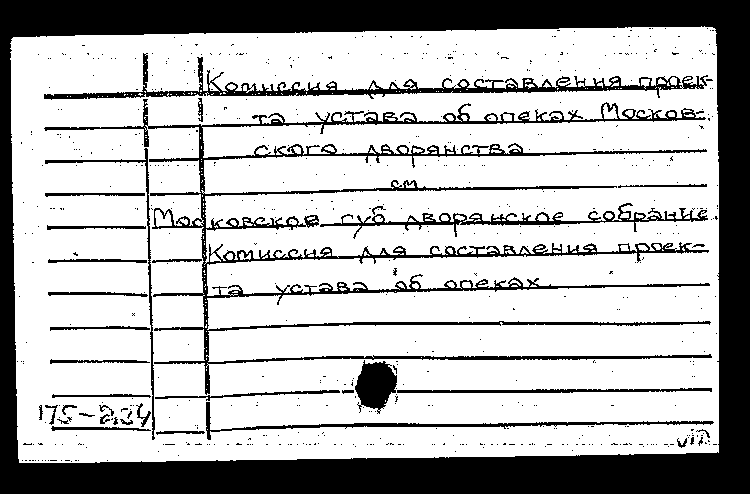 Комиссия для составления проек-
та устава об опеках Москов-
ского дворянства
см.
Московское губ. дворянское собрание.
Комиссия для составления проек-
та устава об опеках.
175-234